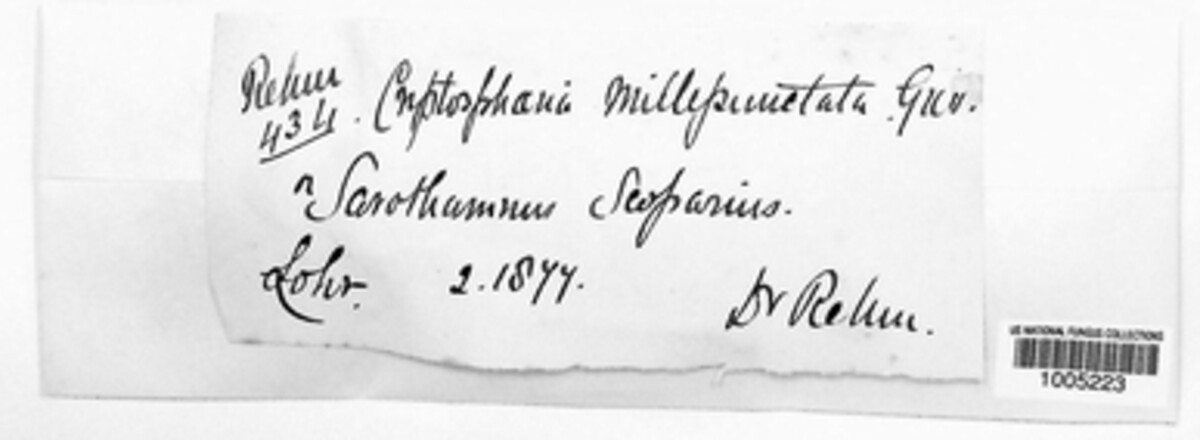 Rehm
434. Cryptosphaeria millepunctata. Grev.
Sarothamnus scoparius.
Lohr. 2. 1877.
Dr Rehm.
US NATIONAL FUNGUS COLLECTIONS
1005223